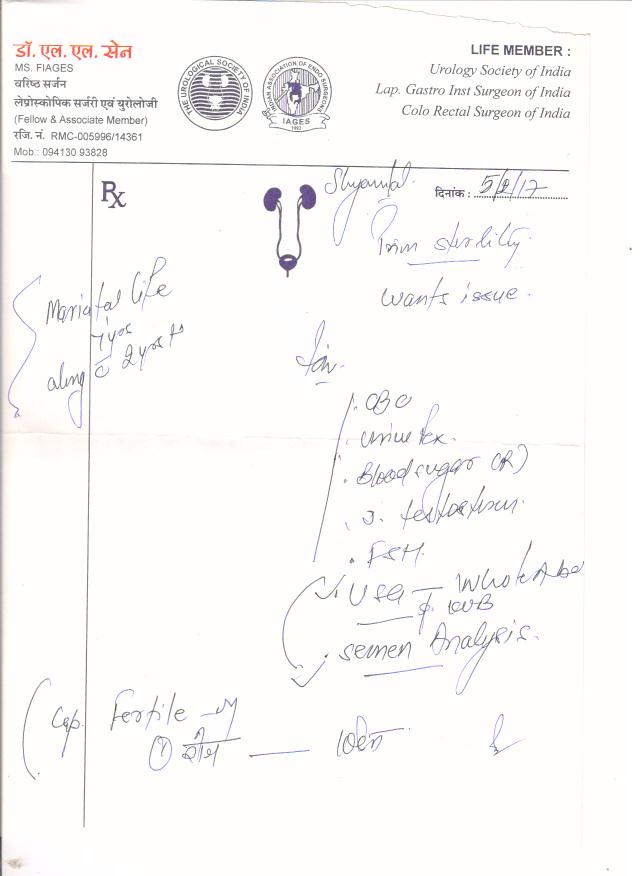 डॉ. एल. एल. सेन
MS. FIAGES
वरिष्ठ सर्जन
लेप्रोस्कोपिक सर्जरी एवं युरोलोजी
(Fellow & Associate Member)
रजि. नं. RMC-005996/14361
Mob.: 094130 93828
THE UROLOGICAL SOCIETY OF INDIA
INDIAN ASSOCIATION OF ENDO SURGEONS
IAGES
1993
LIFE MEMBER :
Urology Society of India
Lap. Gastro Inst Surgeon of India
Colo Rectal Surgeon of India
Rx
दिनांक : 5/2/17
sterility
wants issue.
life
along
2 yrs
. CBC
. urine
. Blood sugar (R)
. FSH
USG — Whole Abd
KUB
. semen Analysis.
Cap. Fertile - M